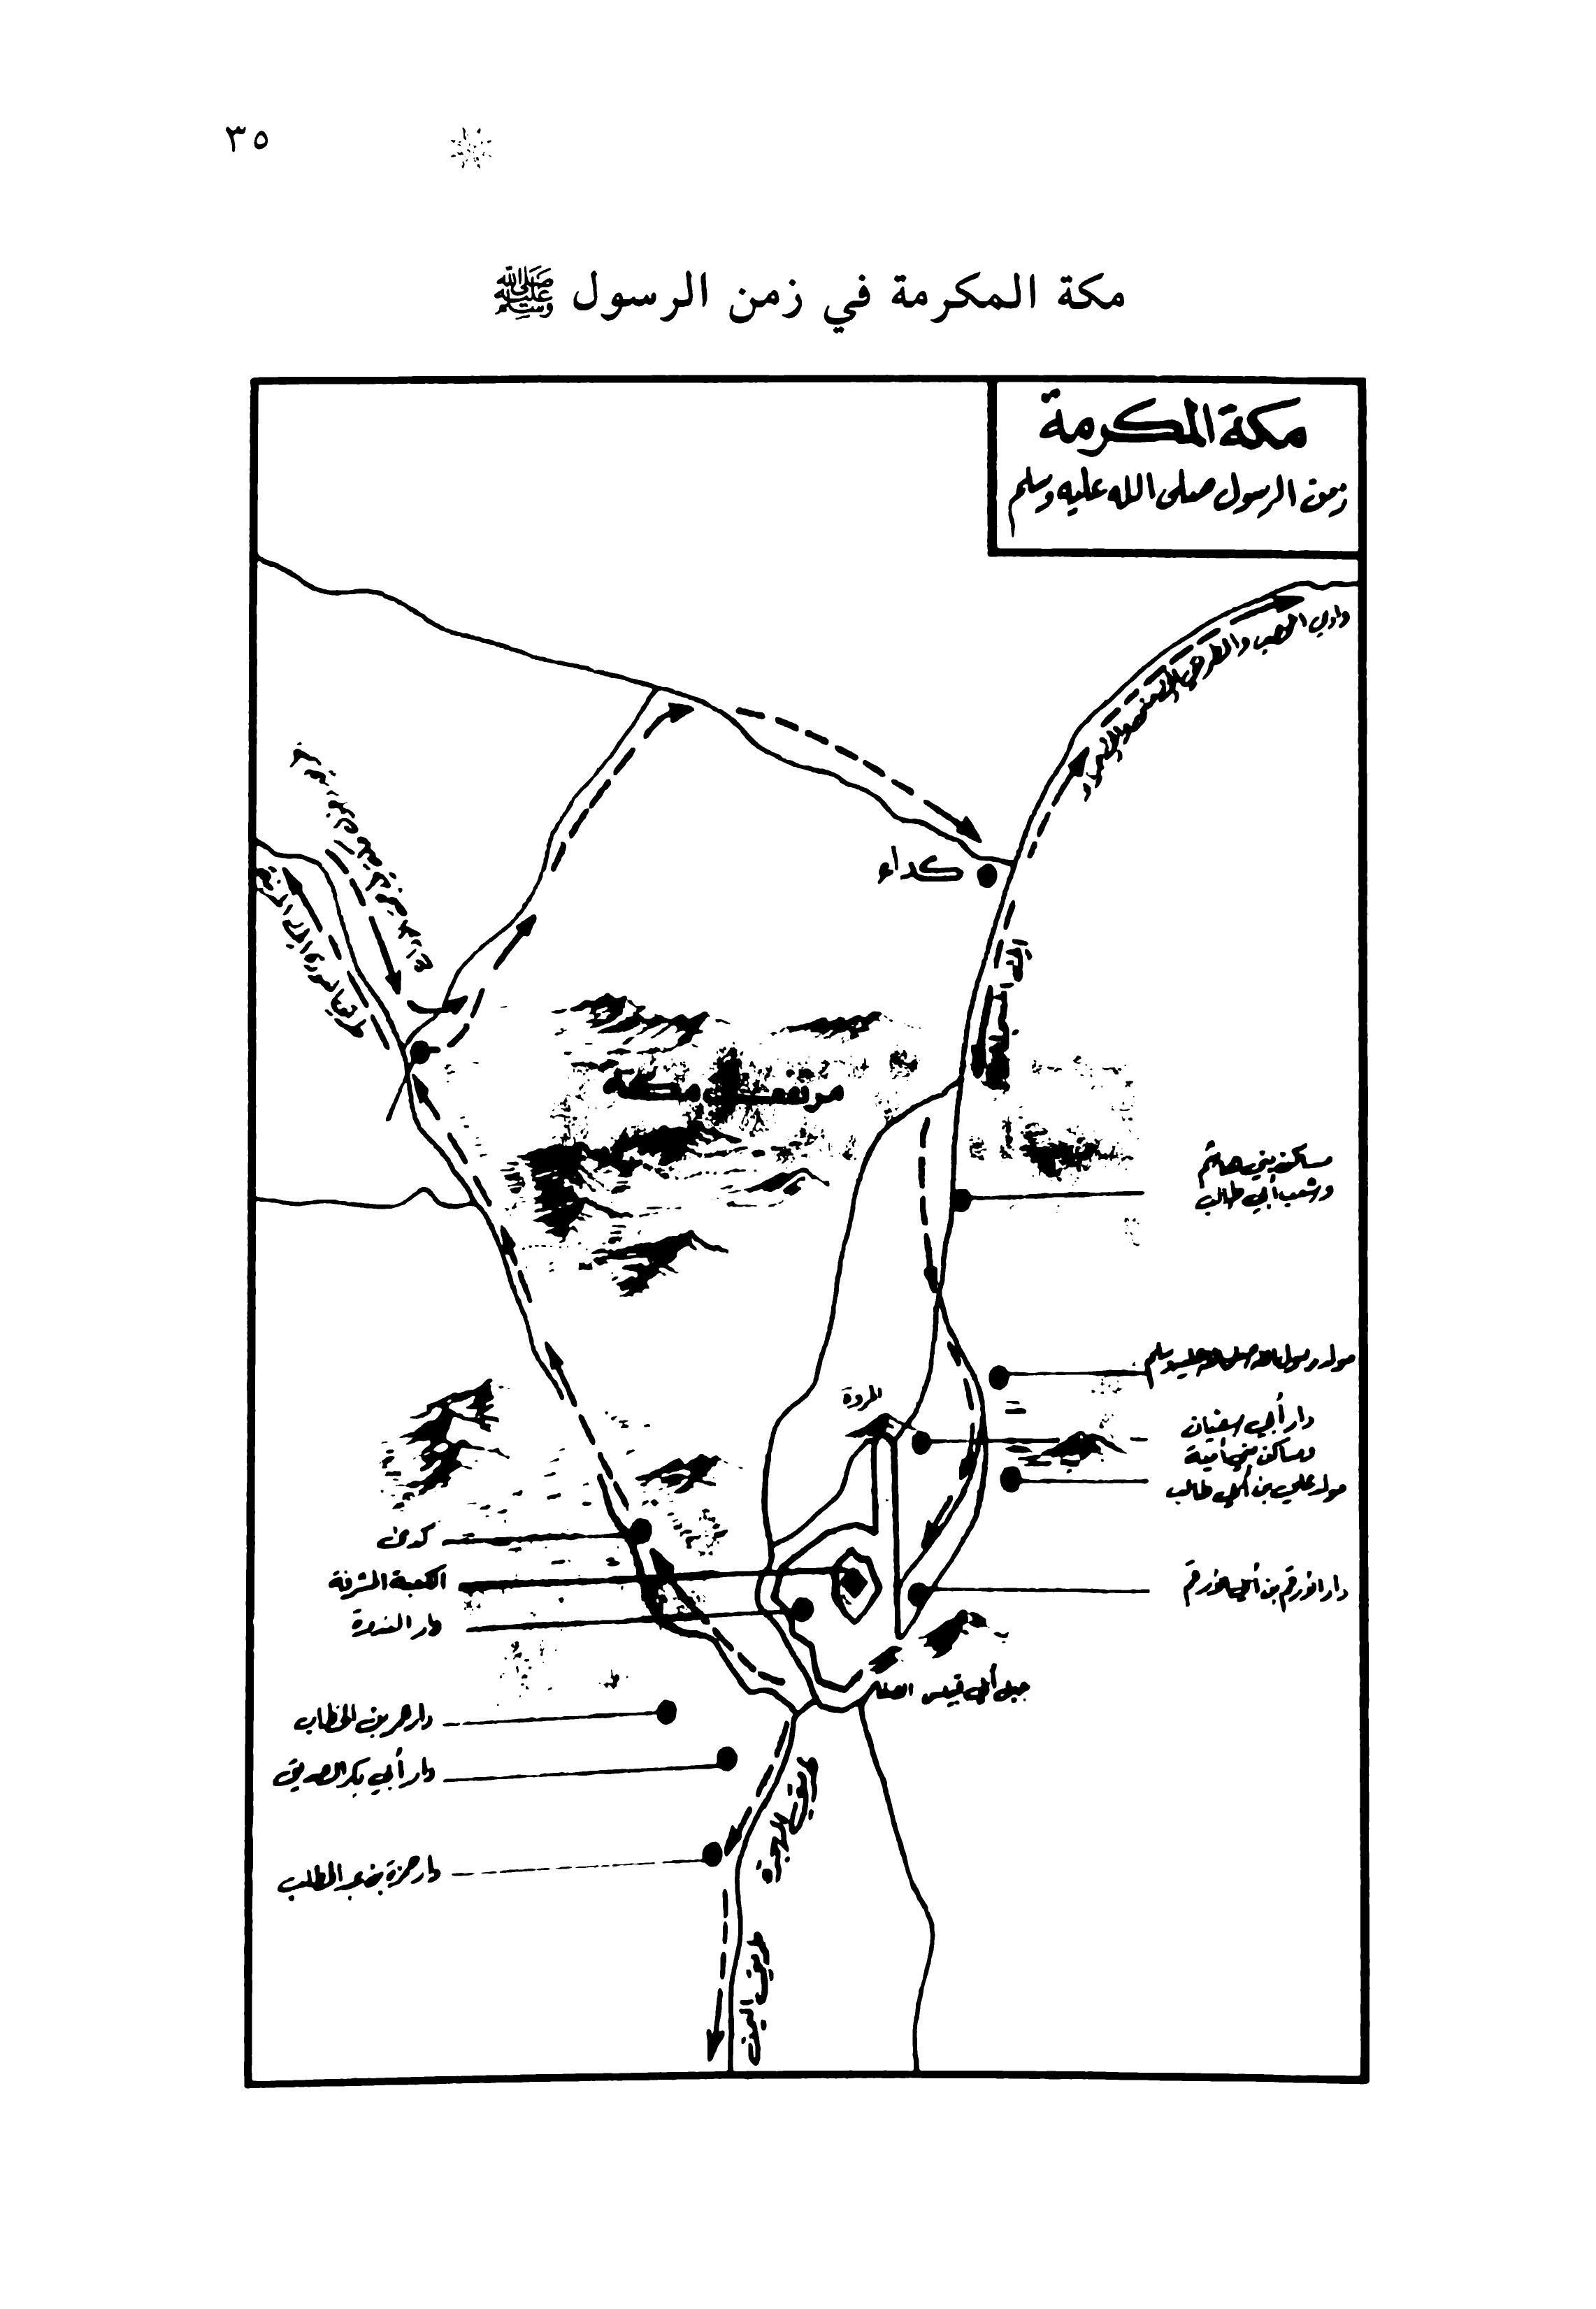 ٣٥
مكة المكرمة في زمن الرسول ﷺ
مكة المكرمة
زمن الرسول صلى الله عليه وسلم
وادي
كداء
مرتفعات مكة
مساكن بني هاشم
وشعب أبي طالب
مولد رسول الله صلى الله عليه وسلم
المروة
دار أبي سفيان
ومساكن بني أمية
مولد علي بن أبي طالب
كدى
الكعبة المشرفة
دار الأرقم بن أبي الأرقم
دار الندوة
جبل أبي قبيس الصفا
دار عمر بن الخطاب
دار أبي بكر الصديق
طريق الهجرة
دار حمزة بن عبد المطلب
طريق اليمن